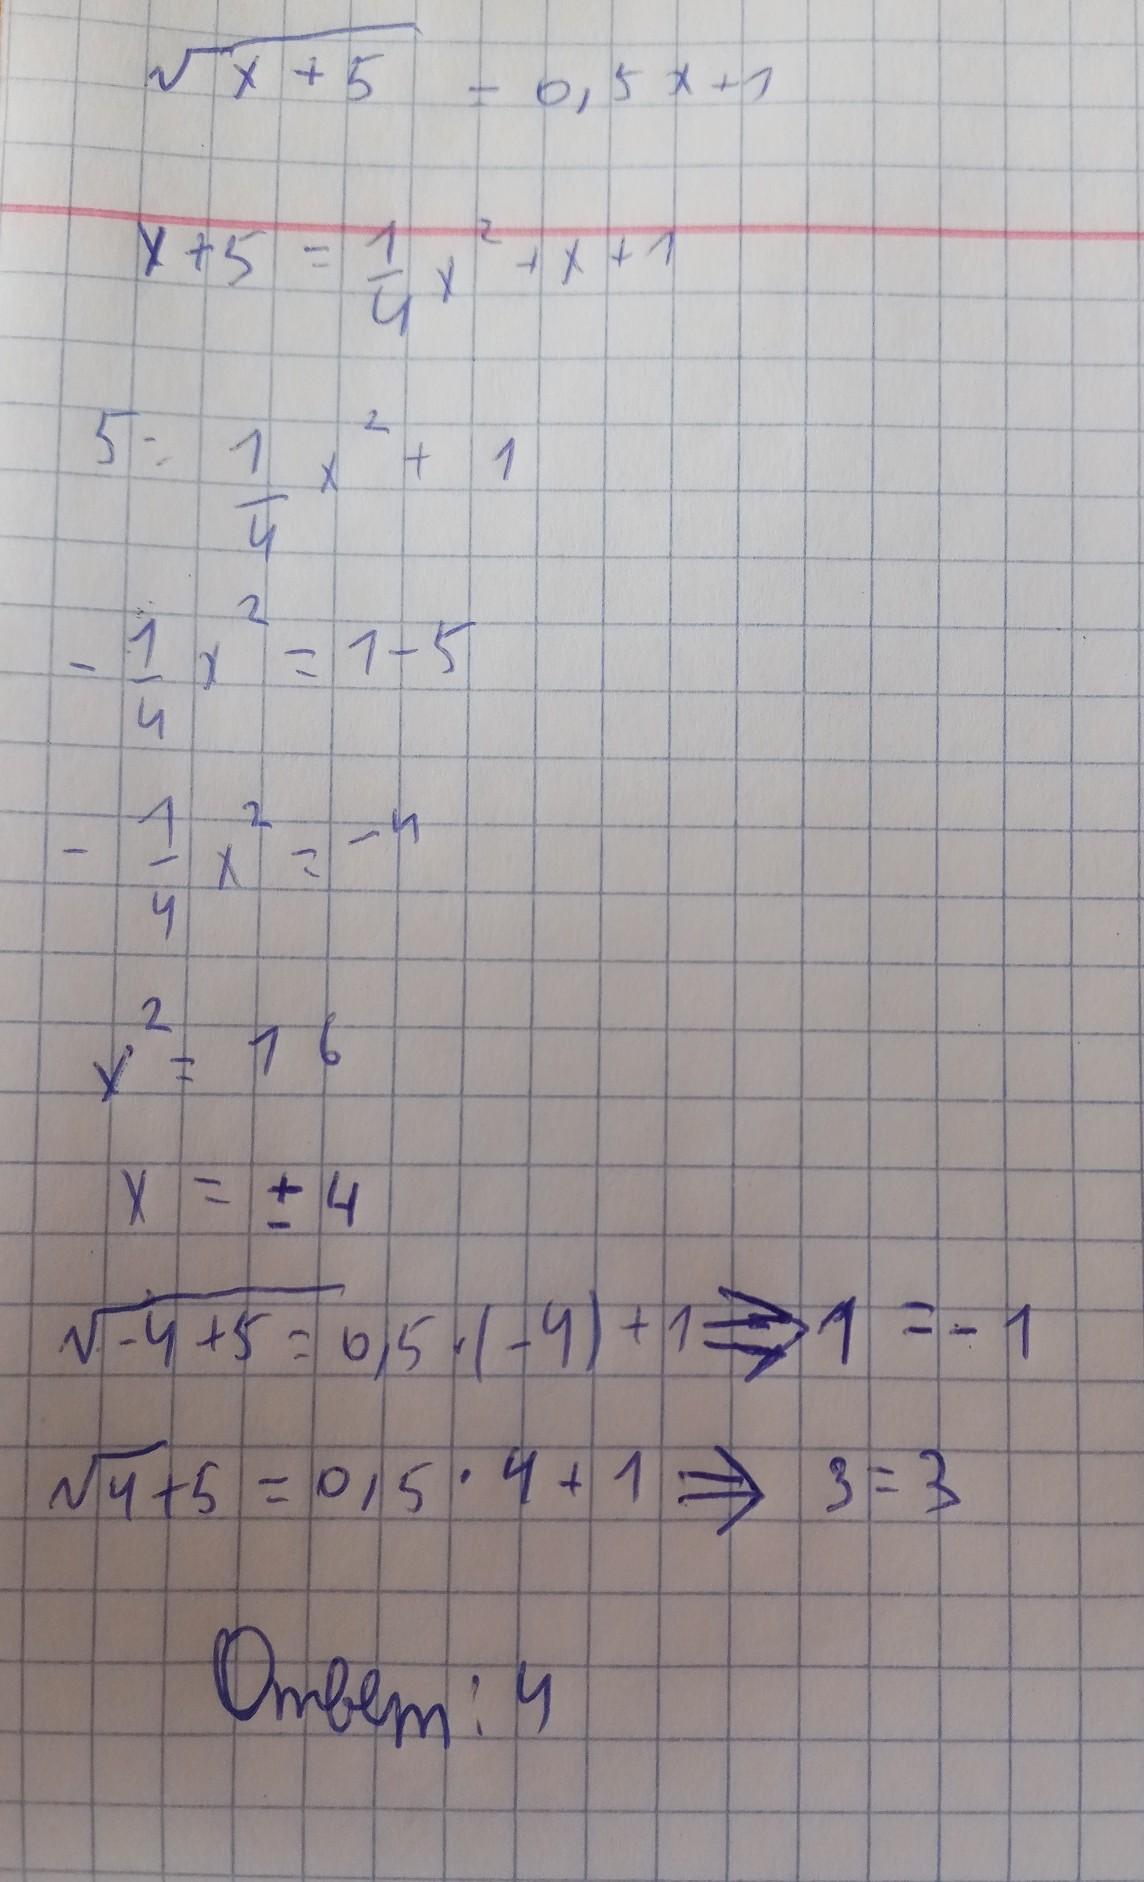 √x+5 = 0,5x+1
x+5 = 1/4 x² + x + 1
5 = 1/4 x² + 1
- 1/4 x² = 1-5
- 1/4 x² = -4
x² = 16
x = ± 4
√-4+5 = 0,5·(-4)+1 ⇒ 1 = -1
√4+5 = 0,5·4+1 ⇒ 3=3
Ответ: 4